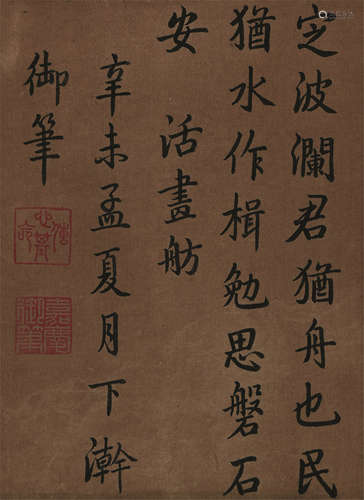 定波瀾君猶舟也民
猶水作楫勉思磐石
安 活畫舫
辛未孟夏月下澣
御筆
嘉慶御筆